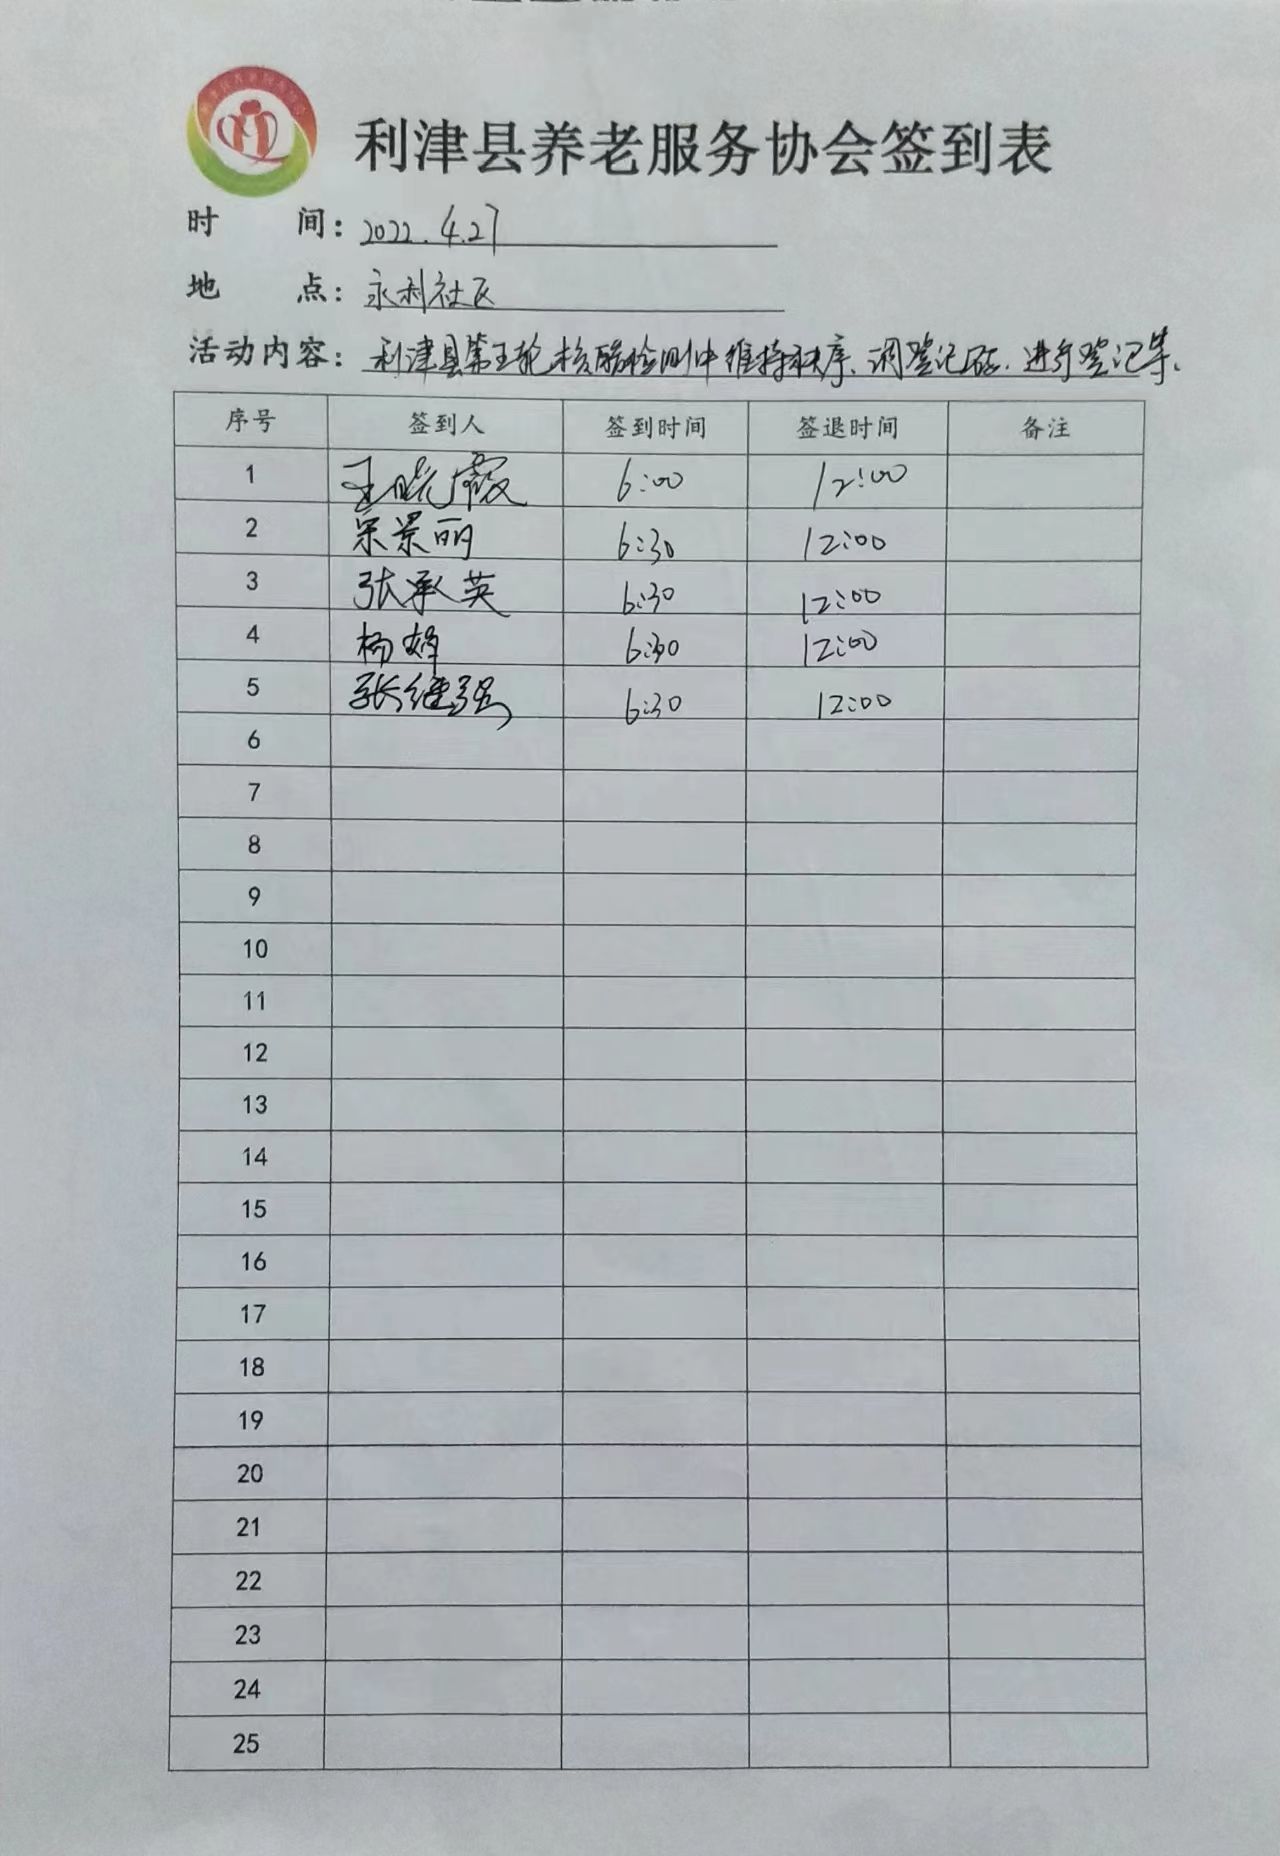 利津县养老服务协会签到表
时 间：2022.4.27
地 点：永利社区
活动内容：利津县第五轮核酸检测中维持秩序、调登记码、进行登记等。
序号 签到人 签到时间 签退时间 备注
1 王晓霞 6:00 12:00
2 宋景丽 6:30 12:00
3 张承英 6:30 12:00
4 杨婷 6:30 12:00
5 张继强 6:30 12:00
6
7
8
9
10
11
12
13
14
15
16
17
18
19
20
21
22
23
24
25